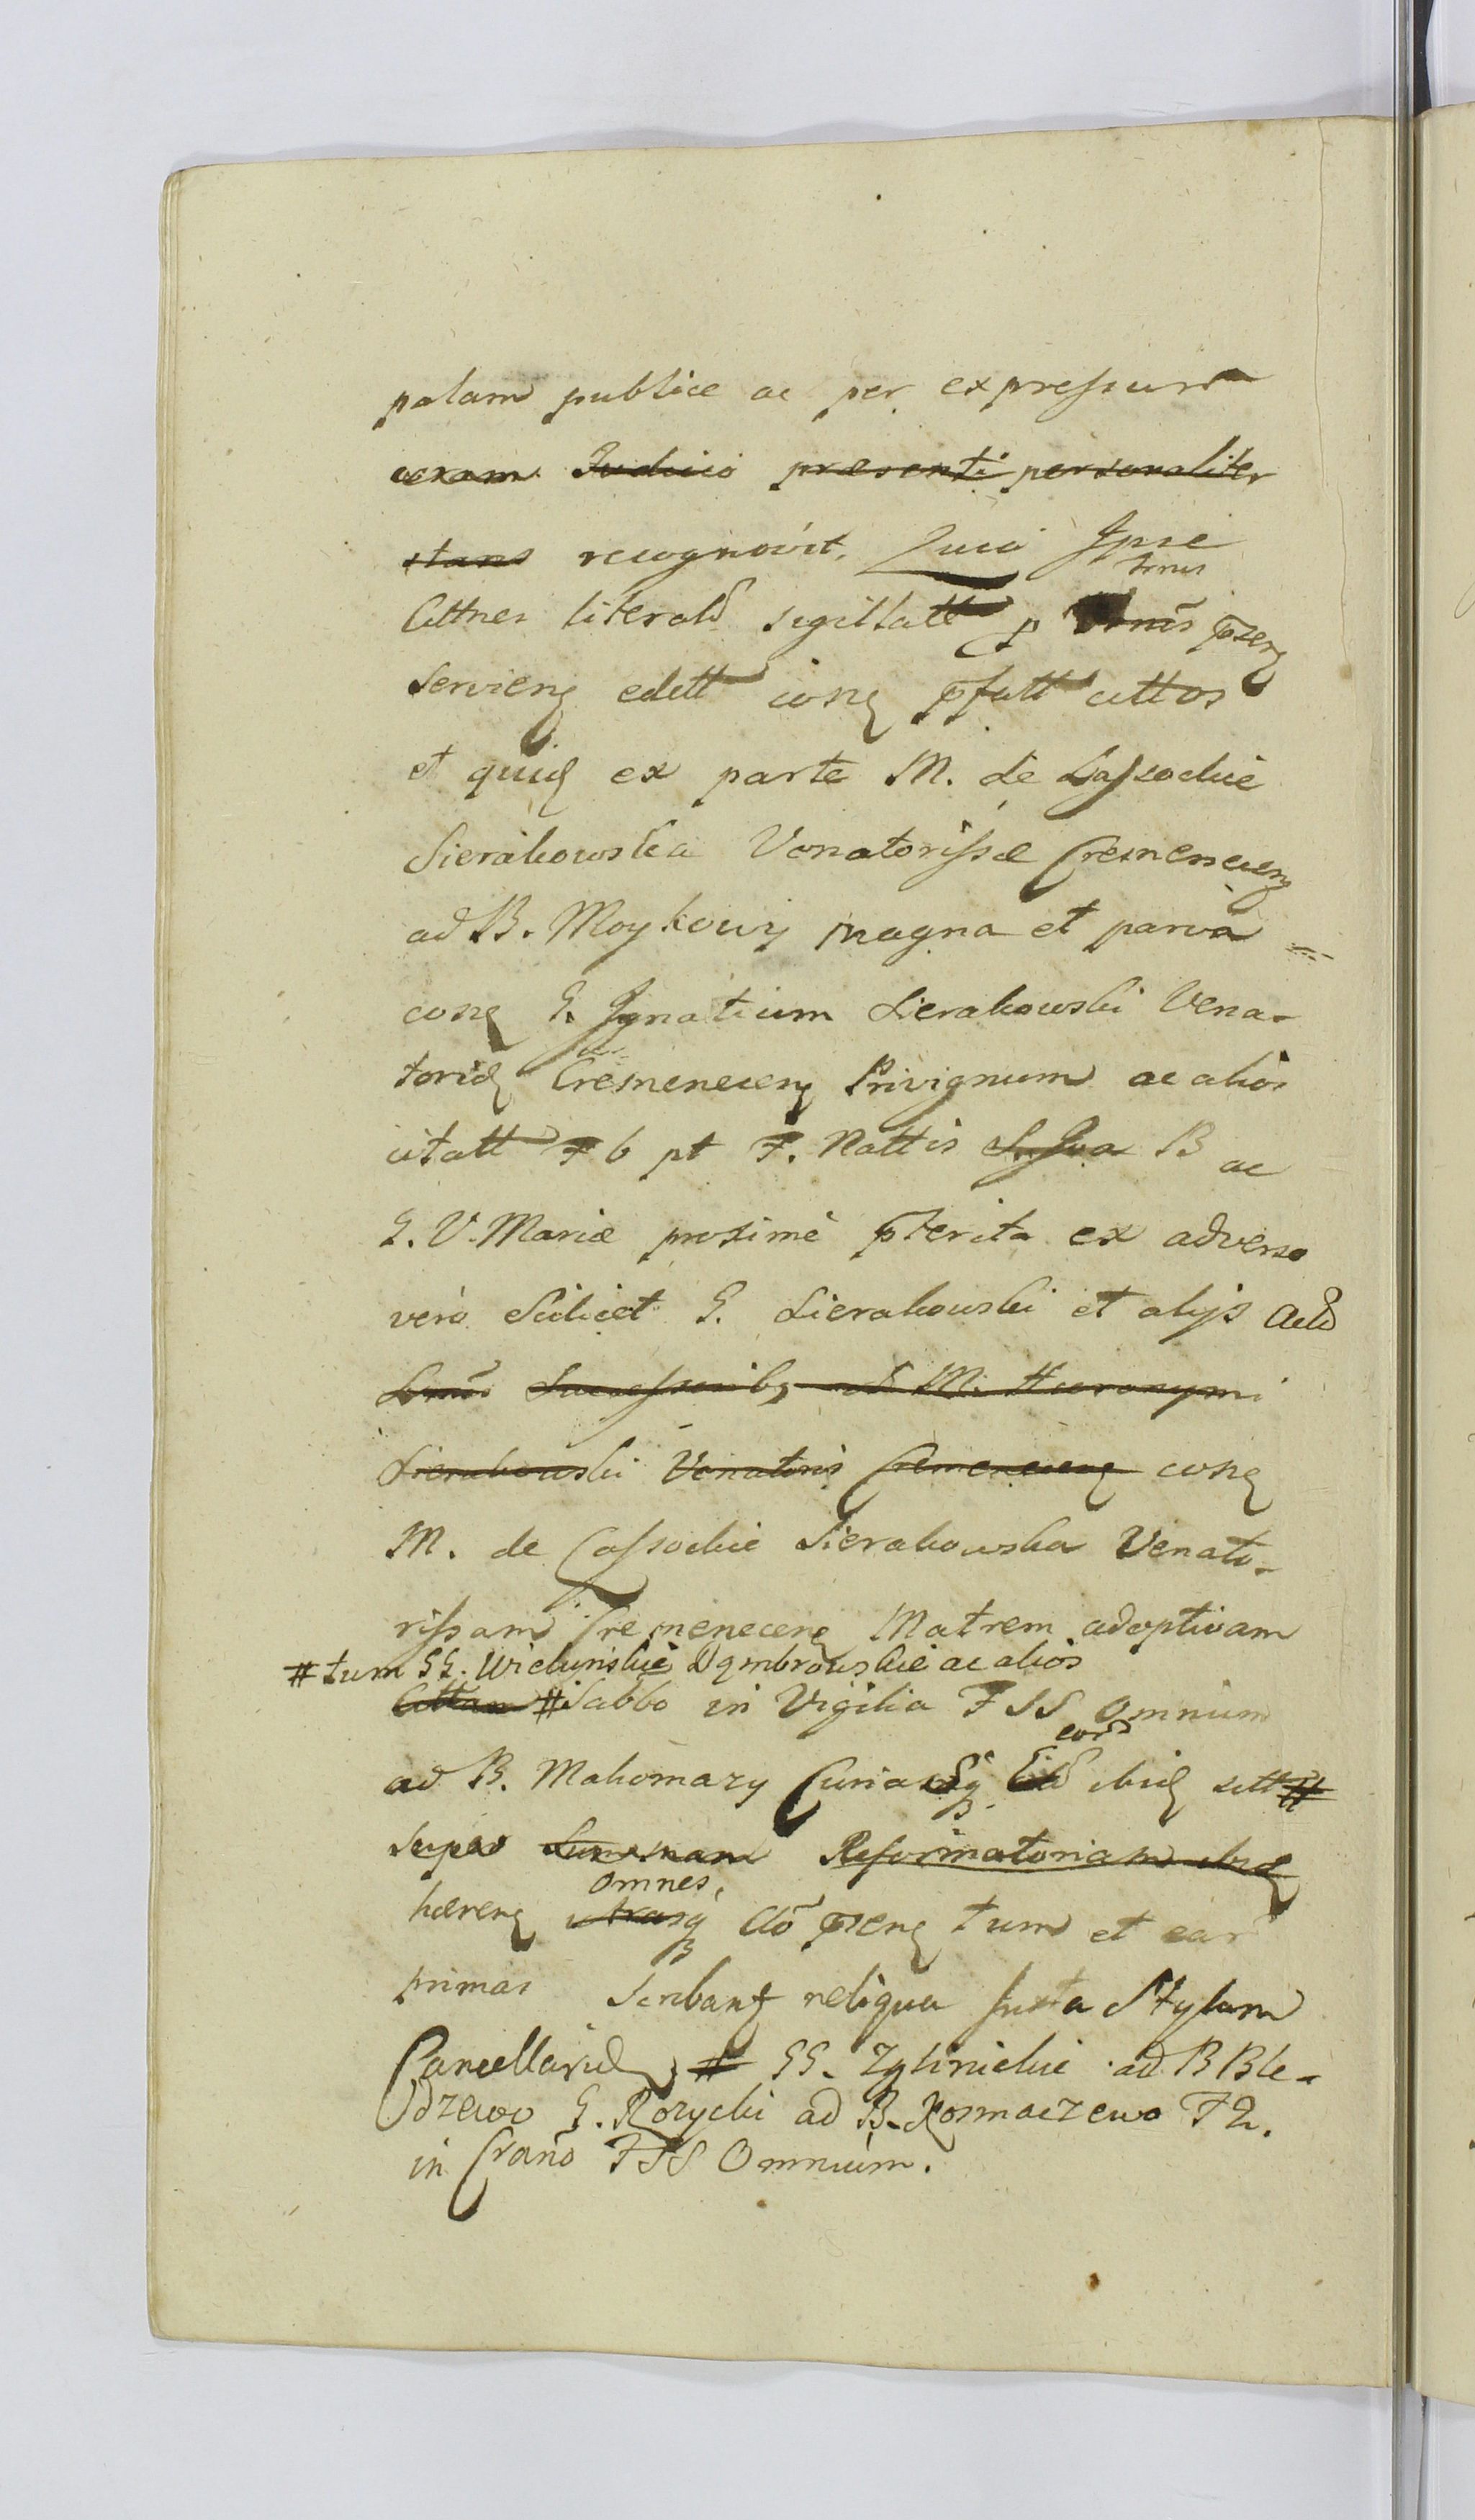 palam publice ac per expressum
coram Judicio præsenti personaliter
stans recognovit. Quia Ipse
ternis
Cttnes literald sigillatt p pseng
Servieng edett cong pfatt cittos
et quid ex parte M. de Lassockie
Sierakowska Venatorissæ Cremeneceng
ad B. Moykowy magna et parva
cong G. Ignatium Sierakowski Vena-
torid Cremeneceng Privignum ac alios
citatt F 6 pt F. Nattis B ac
G. V. Mariæ proximè pterita ex adverso
verò Scilicet G. Sierakowski et alijs Actd
Successoribq M. Hieronymi
Sierakowski Venatoris Cremeneceng cong
M. de Lassockie Sierakowska Venato-
rissam Cremeneceng Matrem adoptivam
# tum GG. Wieluńskie Dąmbrowskie ac alios
# Sabbo in Vigilia F SS Omnium
eord
ad B. Mahomazy Curiasq ibid sitt #
super Summam Reformatoriam ibid
omnes,
hæreng utrasq ad pseng tum et ear
primas Scribant reliqua Juxta Stylum
Cancellarid # GG. Zglinickie ad B Ble-
dzewo G. Rozycki ad B. Kosmaczewo F 2.
in Crano F SS Omnium.